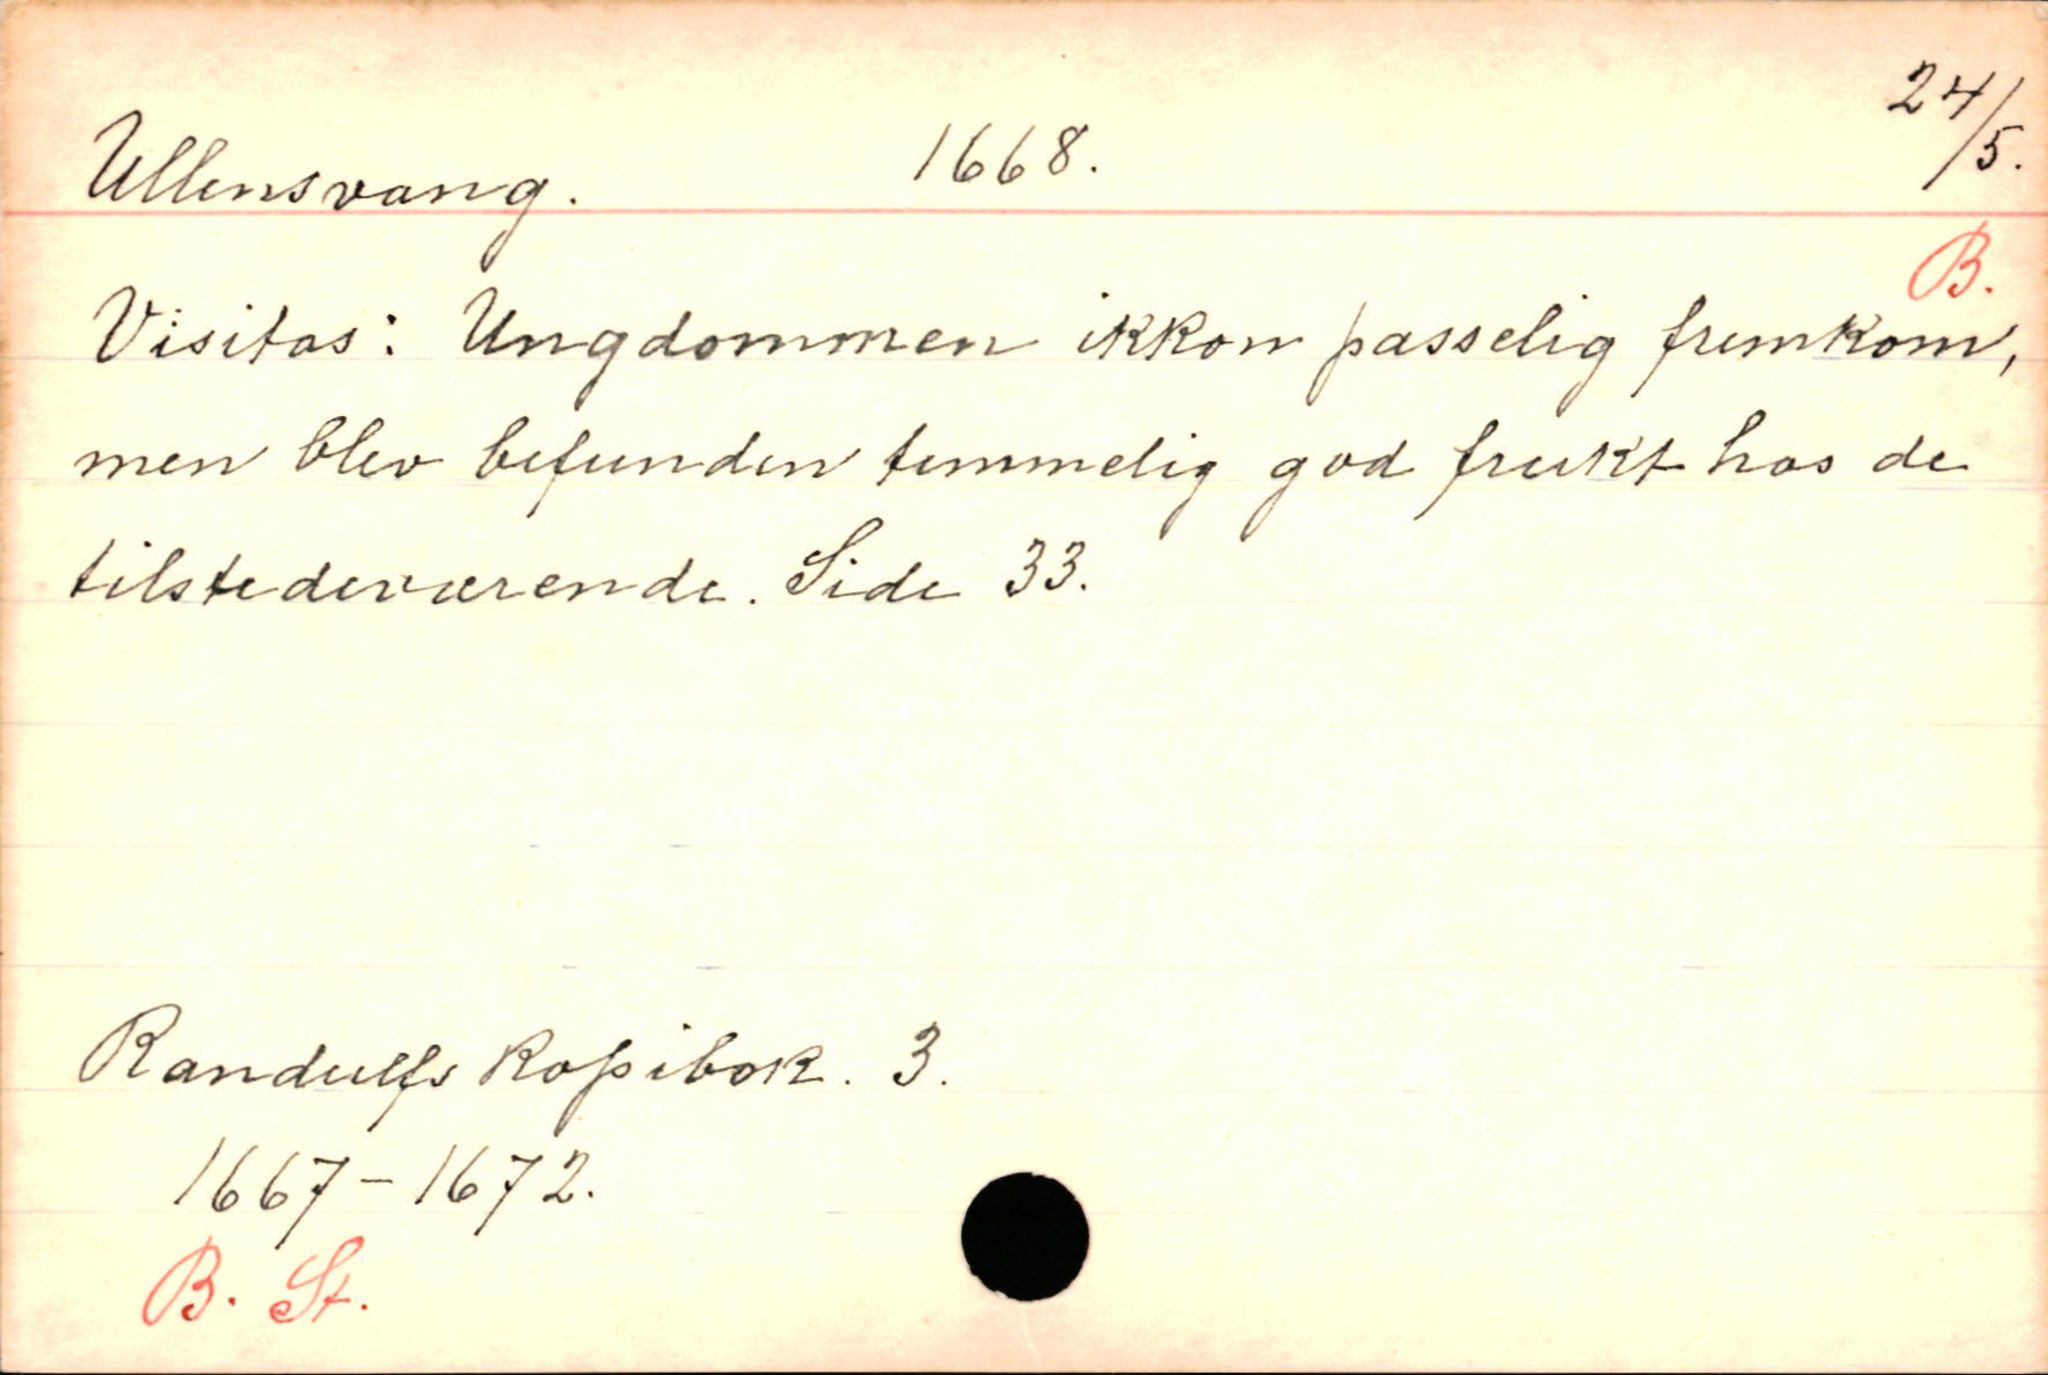 Ullensvang. 1668. 24/5.
B.
Visitas: Ungdommen ikkon passelig fremkom,
men blev befunden temmelig god frukt hos de
tilstedeværende. Side 33.
Randulfs Kopibok. 3.
1667-1672.
B. St.